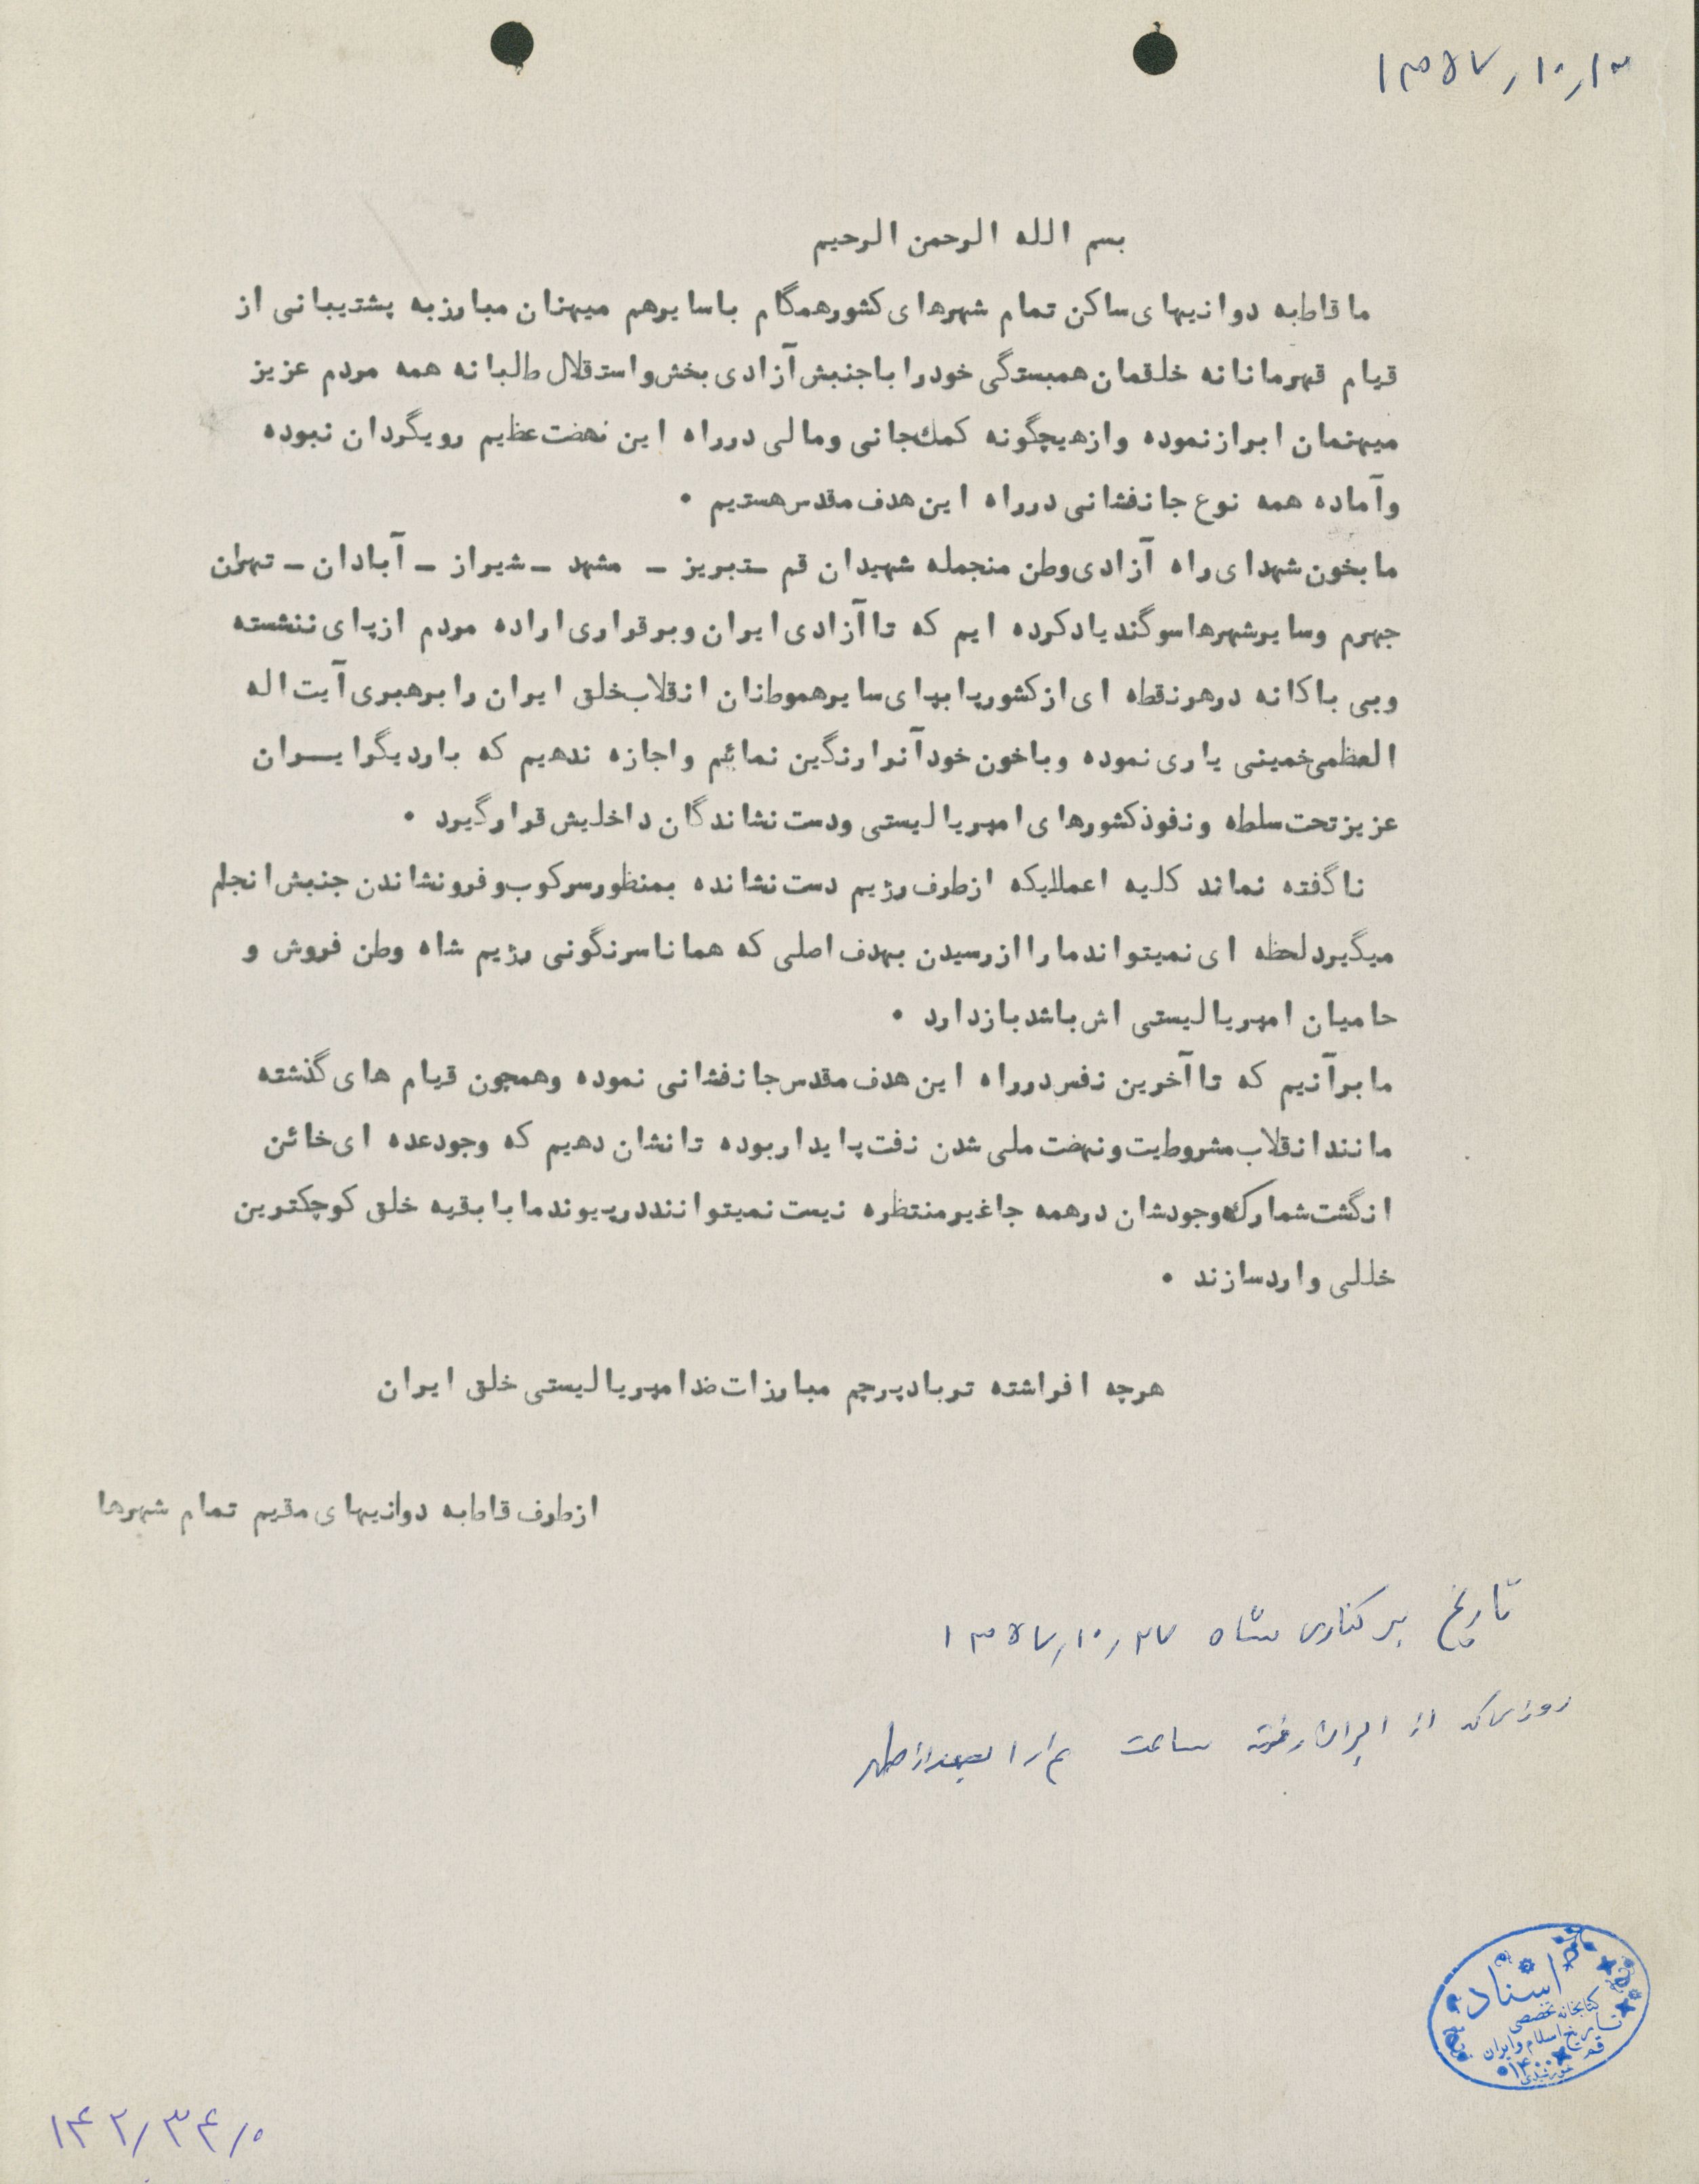 ۱۳۵۷٫۱۰٫۱۳
بسم الله الرحمن الرحیم
ما قاطبه دوانیهای ساکن تمام شهرهای کشور همگام با سایر هم میهنان مبارز به پشتیبانی از
قیام قهرمانانه خلقمان همبستگی خود را با جنبش آزادی بخش و استقلال طلبانه همه مردم عزیز
میهنمان ابراز نموده و از هیچگونه کمك جانی و مالی در راه این نهضت عظیم رویگردان نبوده
و آماده همه نوع جانفشانی در راه این هدف مقدس هستیم .
ما بخون شهدای راه آزادی وطن منجمله شهیدان قم ــ تبریز ــ مشهد ــ شیراز ــ آبادان ــ تهران
جهرم و سایر شهرها سوگند یاد کرده ایم که تا آزادی ایران و برقراری اراده مردم از پای ننشسته
و بی باکانه در هر نقطه ای از کشور پا بپای سایر هموطنان انقلاب خلق ایران را برهبری آیت اله
العظمی خمینی یاری نموده و با خون خود آنرا رنگین نمائیم و اجازه ندهیم که بار دیگر ایــران
عزیز تحت سلطه و نفوذ کشورهای امپریالیستی و دست نشاندگان داخلیش قرار گیرد .
ناگفته نماند کلیه اعمالیکه از طرف رژیم دست نشانده بمنظور سرکوب و فرو نشاندن جنبش انجام
میگیرد لحظه ای نمیتواند ما را از رسیدن بهدف اصلی که همانا سرنگونی رژیم شاه وطن فروش و
حامیان امپریالیستی اش باشد باز دارد .
ما بر آنیم که تا آخرین نفس در راه این هدف مقدس جانفشانی نموده و همچون قیام های گذشته
مانند انقلاب مشروطیت و نهضت ملی شدن نفت پایدار بوده تا نشان دهیم که وجود عده ای خائن
انگشت شمار که وجودشان در همه جا غیر منتظره نیست نمیتوانند در پیوند ما با بقیه خلق کوچکترین
خللی وارد سازند .
هر چه افراشته تر باد پرچم مبارزات ضد امپریالیستی خلق ایران
از طرف قاطبه دوانیهای مقیم تمام شهرها
تاریخ برکناری شاه ۱۳۵۷٫۱۰٫۲۷
روزی که از ایران رفته ساعت بعد از ظهر
اسناد
کتابخانه تخصصی
تاریخ اسلام و ایران
قم
۱۴۲٫۳۴٫۰